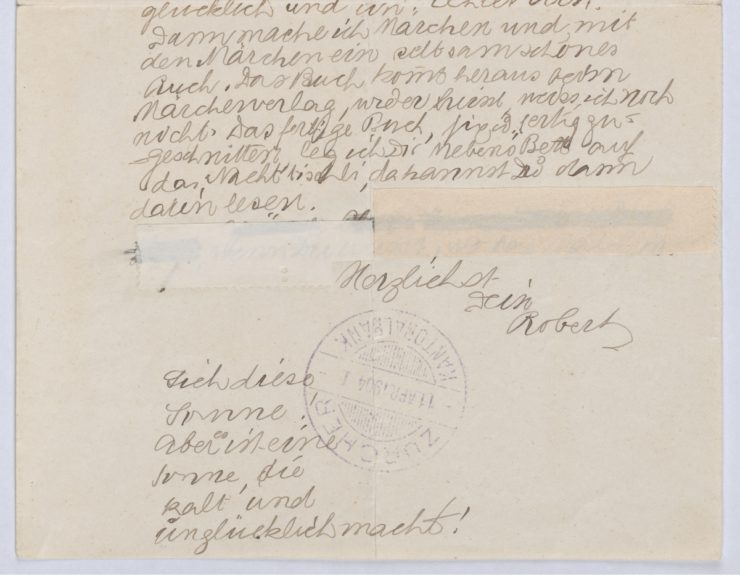 glücklich und
Dann mache ich Märchen und mit
den Märchen ein seltsam schönes
Buch. Das Buch kom̅t heraus beim
Märchenverlag, weiss ich noch
nicht. Das fertige Buch, fix & fertig zu=
geschnitten, leg ich Dir nebens Bett auf
das Nachttischli, da kannst Du dann
darin lesen.
Herzlichst
Dein
Robert
ZÜRCHER
KANTONALBANK
11 APR. 1904
Sieh diese
Sonne.
Aber es ist eine
Sonne, die
kalt und
unglücklich macht!